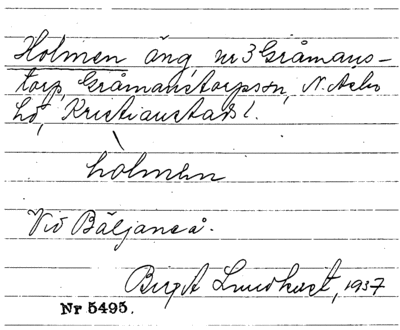 Holmen äng, nr 3 Gråmans-
torp, Gråmanstorpssn, N. Asbo
hd, Kristianstads l.
hòlmen
Vid Bäljaneå.
Birgit Lundkvist, 1937
Nr 5495.